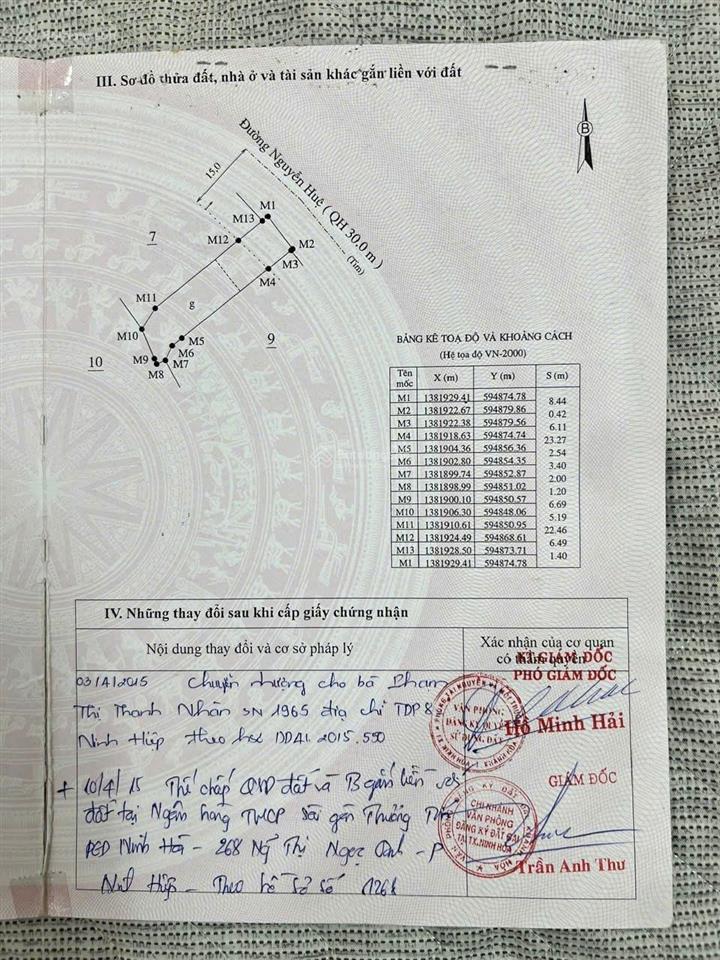 III. Sơ đồ thửa đất, nhà ở và tài sản khác gắn liền với đất
B
Đường Nguyễn Huệ ( QH 30.0 m )
(Tim)
15.0
7
1
M1
M13
M12
M2
M3
M4
M11
g
M10
M5
9
M6
M9
M7
M8
10
BẢNG KÊ TOẠ ĐỘ VÀ KHOẢNG CÁCH
(Hệ tọa độ VN-2000)
Tên mốc X (m) Y (m) S (m)
M1 1381929.41 594874.78
8.44
M2 1381922.67 594879.86
0.42
M3 1381922.38 594879.56
6.11
M4 1381918.63 594874.74
23.27
M5 1381904.36 594856.36
2.54
M6 1381902.80 594854.35
3.40
M7 1381899.74 594852.87
2.00
M8 1381898.99 594851.02
1.20
M9 1381900.10 594850.57
6.69
M10 1381906.30 594848.06
5.19
M11 1381910.61 594850.95
22.46
M12 1381924.49 594868.61
6.49
M13 1381928.50 594873.71
1.40
M1 1381929.41 594874.78
IV. Những thay đổi sau khi cấp giấy chứng nhận
Nội dung thay đổi và cơ sở pháp lý
Xác nhận của cơ quan
có thẩm quyền
KT GIÁM ĐỐC
PHÓ GIÁM ĐỐC
03/4/2015 Chuyển nhượng cho bà Phạm
Thị Thanh Nhân SN 1965 địa chỉ TDP 8
Ninh Hiệp theo hs
VĂN PHÒNG
ĐĂNG KÝ QUYỀN
SỬ DỤNG ĐẤT
Hồ Minh Hải
+ 10/4/15 Thế chấp QSD đất và gắn liền với
đất tại Ngân hàng TMCP Sài Gòn Thương Tín
PGD Ninh Hòa - 268 Thị Ngọc Oanh - P
Ninh Hiệp - Theo hồ sơ số 1268
GIÁM ĐỐC
CHI NHÁNH
VĂN PHÒNG
ĐĂNG KÝ ĐẤT ĐAI
TẠI TX.NINH HÒA
Trần Anh Thư